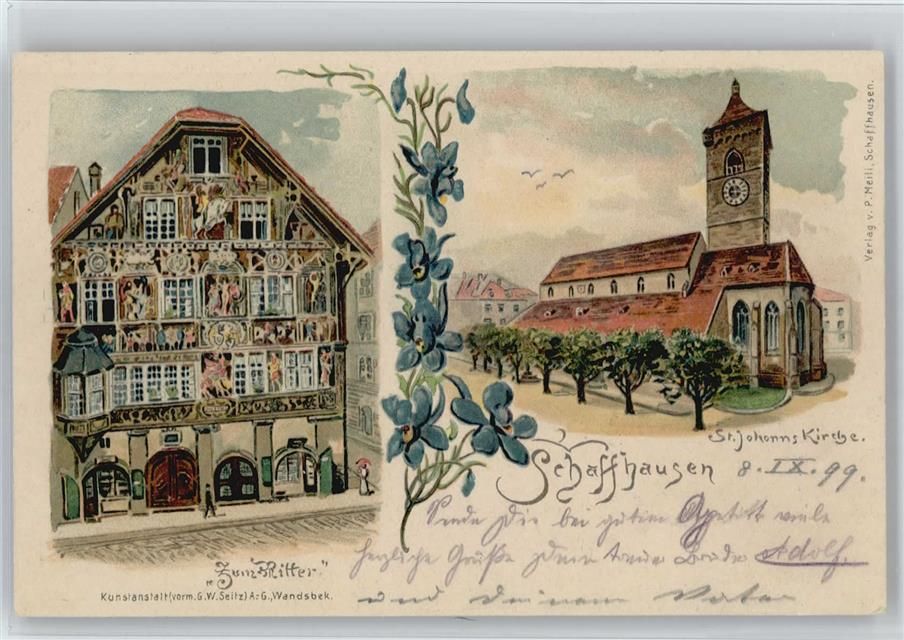 Verlag v. P. Meili, Schaffhausen.
St. Johanns Kirche.
Schaffhausen 8. IX. 99.
Sende Dir bei gutem Apetitt viele
herzliche Grüße Dein treuer Bruder Adolf.
und Deinem Vater
"Zum Ritter."
Kunstanstalt (vorm. G. W. Seitz) A.-G., Wandsbek.